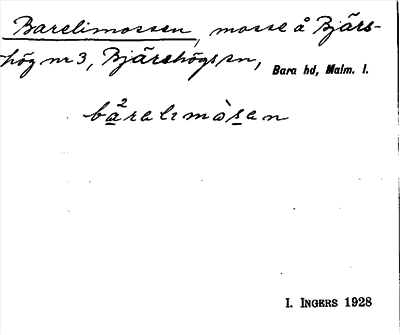 Barelimossen, mosse å Bjärs-
hög nr 3, Bjärshögs sn, Bara hd, Malm. l.
bä²ralimòsan
I. INGERS 1928